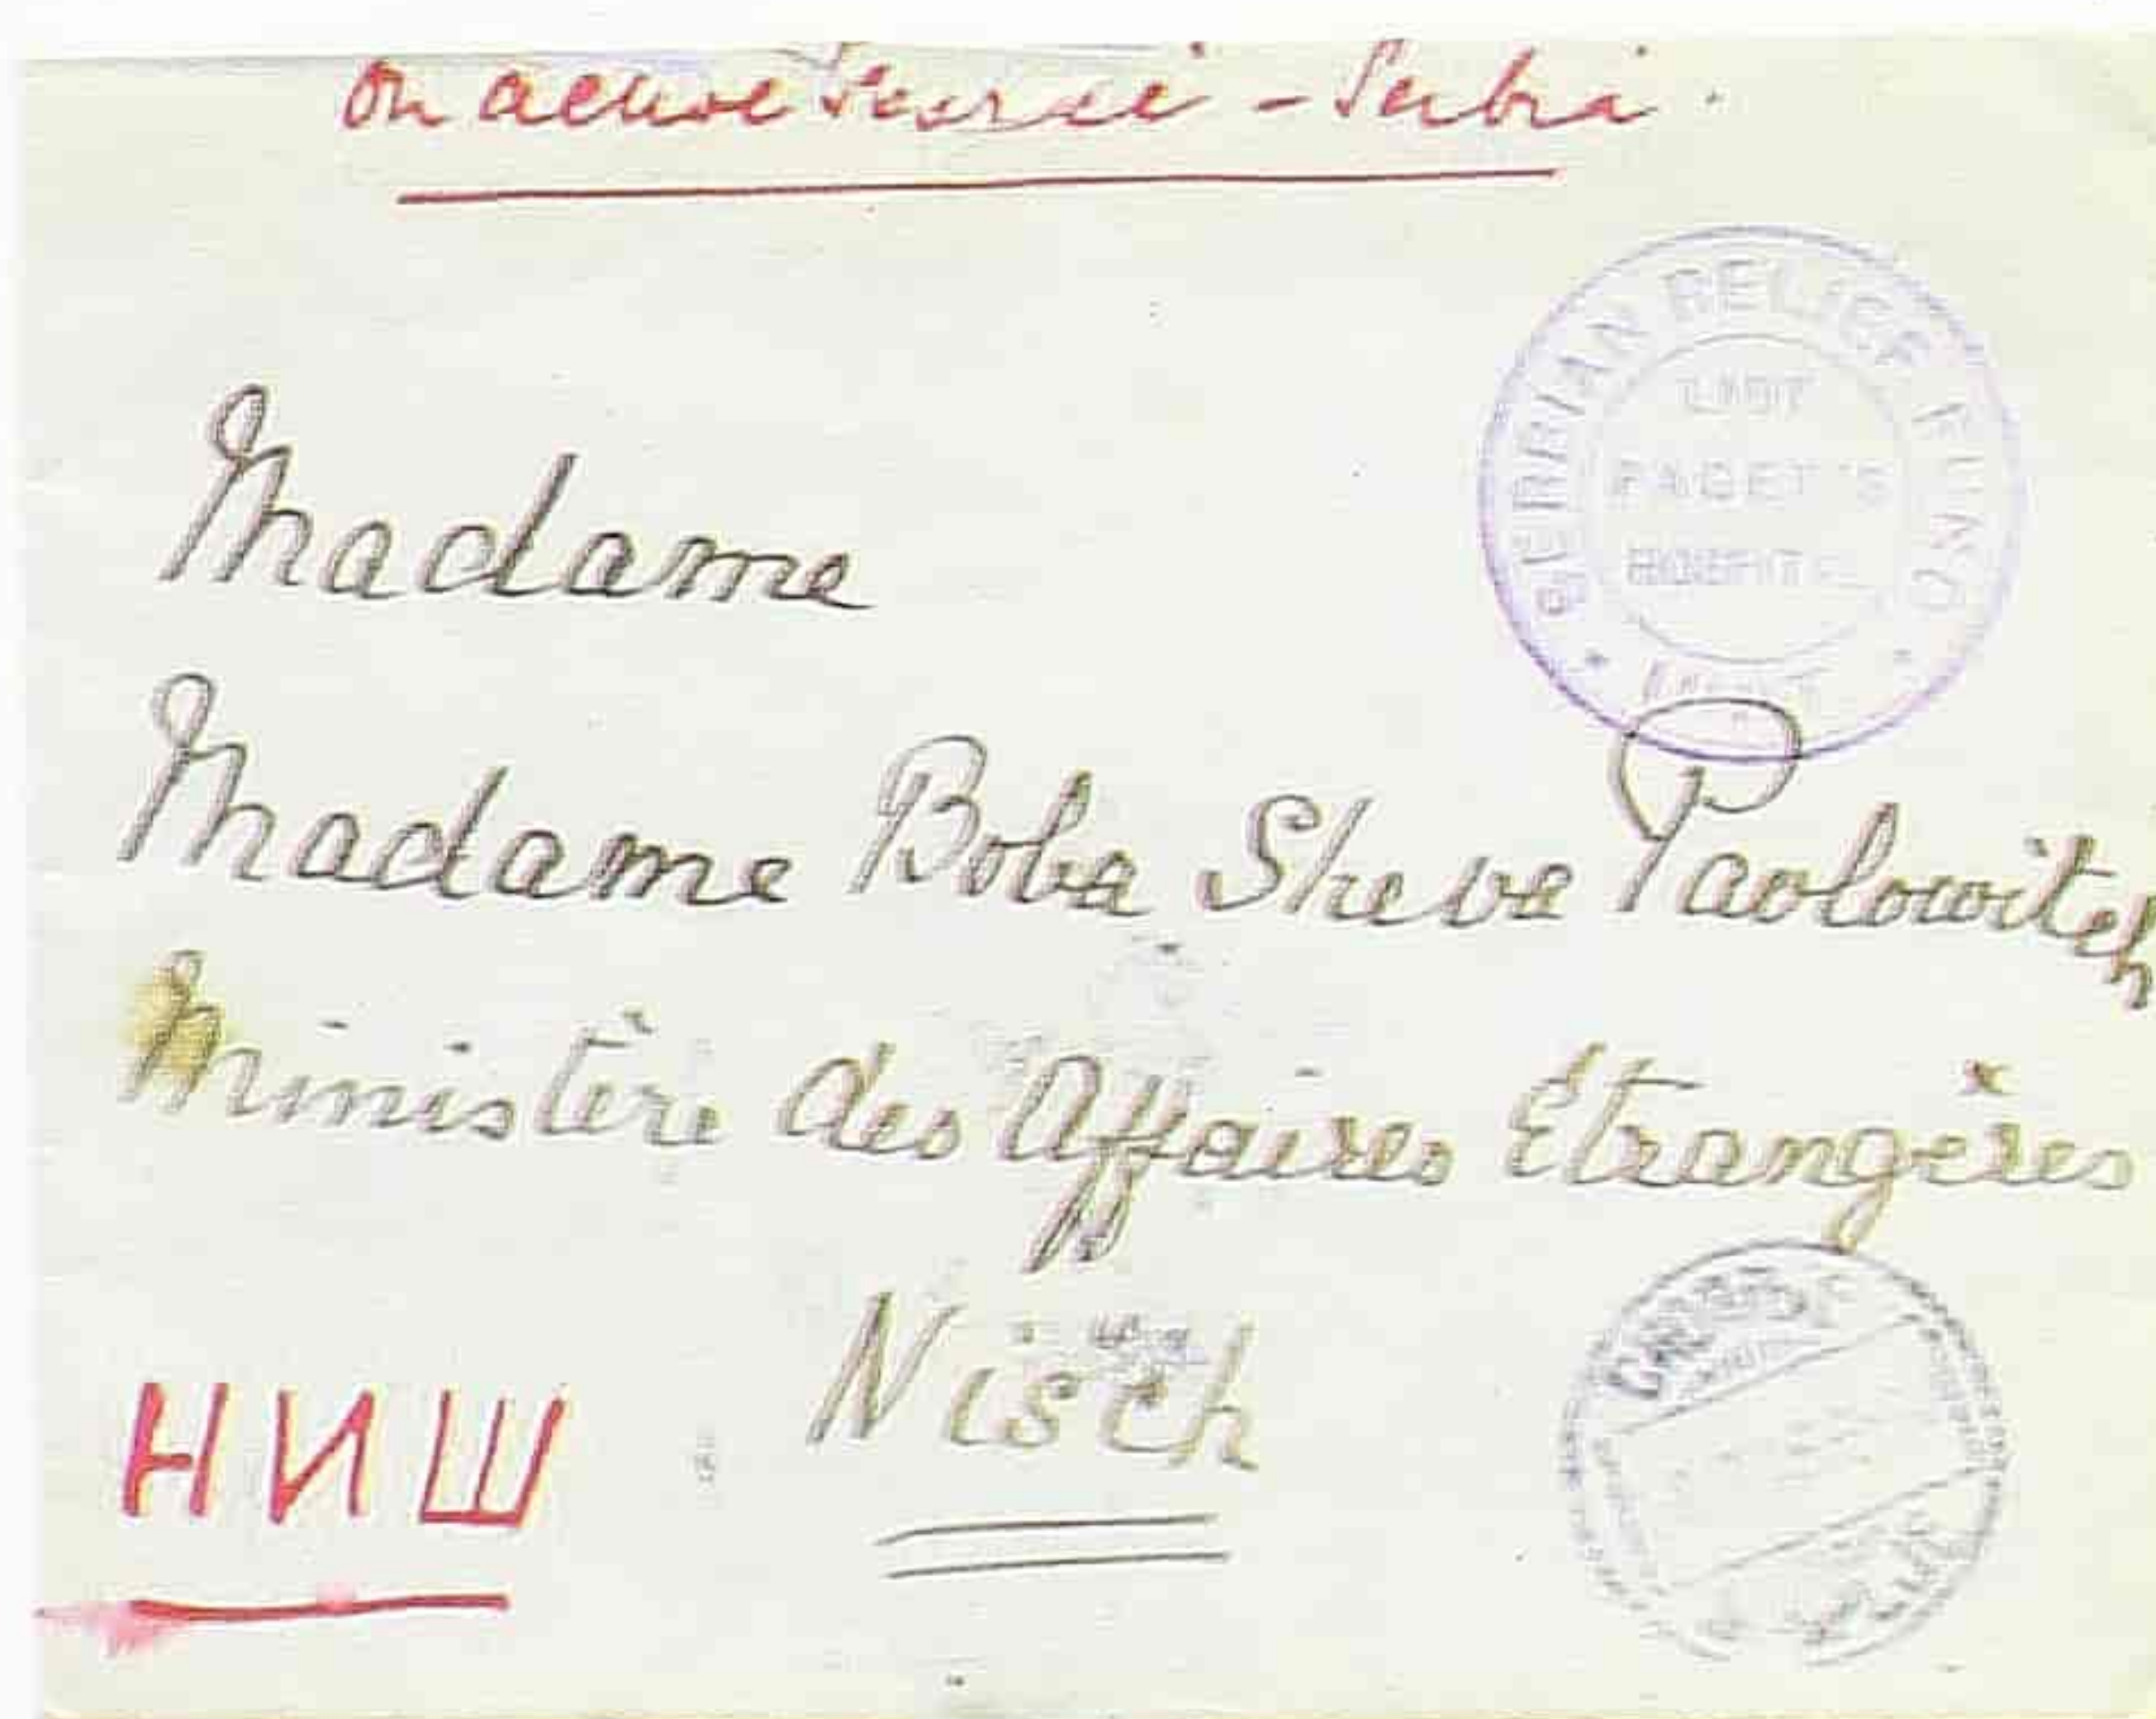 On active Service - Serbia.
SERBIAN RELIEF FUND
LADY
PAGET'S
HOSPITAL
Madame
Madame Boba Sheva Pavlowitch
Ministère des Affaires Etrangères
Nisch
НИШ